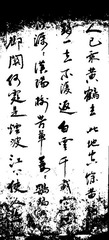 人已乘黃鶴去此地空餘黃
鶴一去不復返白雲千載
歷漢陽樹芳草萋萋鸚鵡
鄉關何處是煙波江上使人